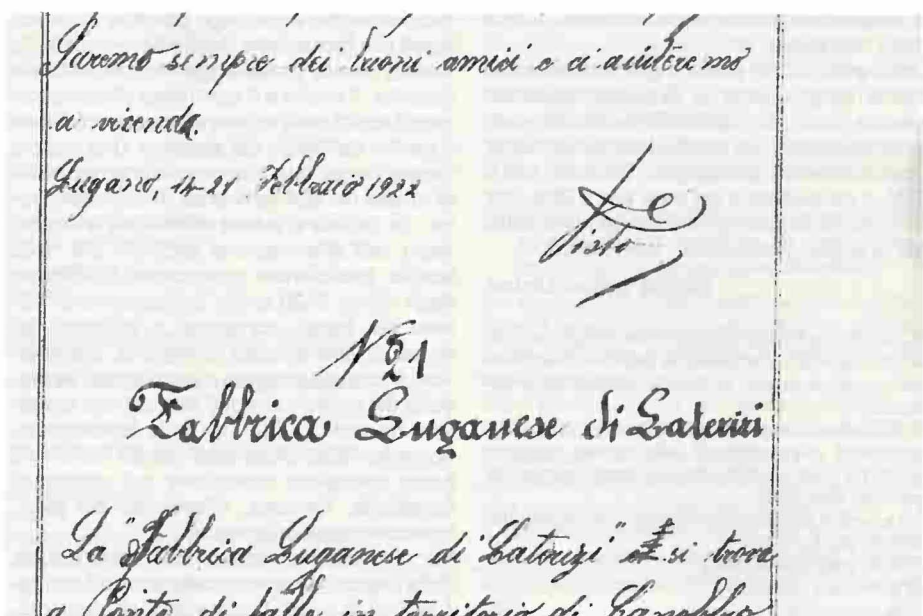 Saremo sempre dei buoni amici e ci aiuteremo
a vicenda.
Lugano, 14-21 Febbraio 1922
Visto
N° 21
Fabbrica Luganese di Laterizi
La "Fabbrica Luganese di Laterizi" si trova
a Ponte di Valle in territorio di Canobbio